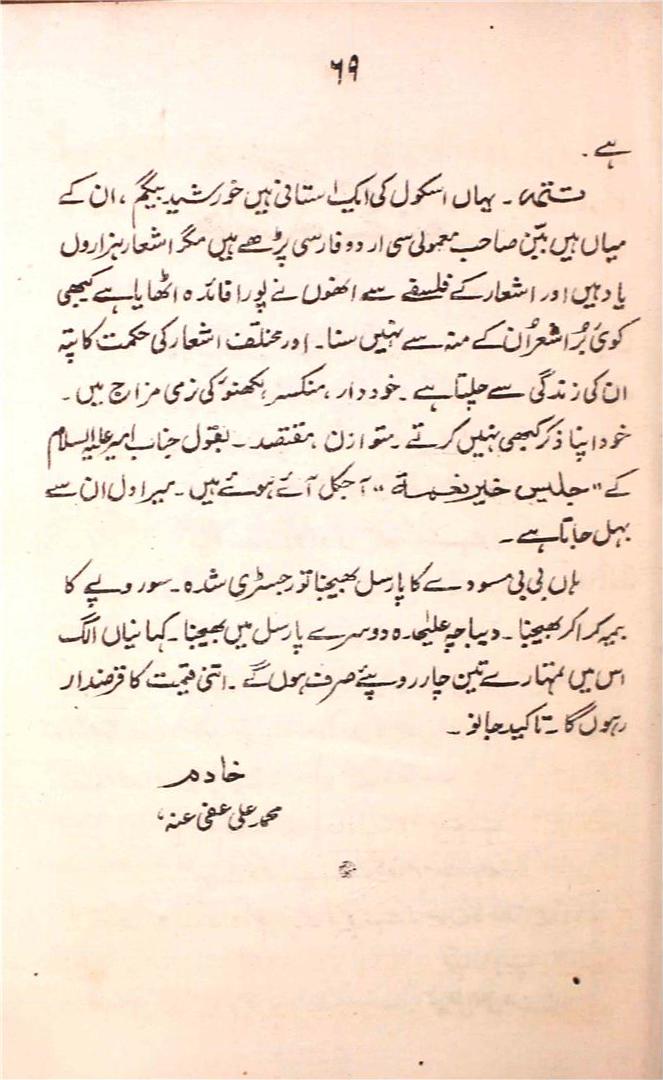 ۶۹
ہے ۔
تتمہ ۔ یہاں اسکول کی ایک استانی ہیں خورشید بیگم ، ان کے
میاں ہیں ببّن صاحب معمولی سی اردو فارسی پڑھے ہیں مگر اشعار ہزاروں
یاد ہیں اور اشعار کے فلسفے سے انھوں نے پورا فائدہ اٹھایا ہے کبھی
کوئی بُرا شعر اُن کے منہ سے نہیں سنا۔ اور مختلف اشعار کی حکمت کا پتہ
ان کی زندگی سے چلتا ہے ۔ خوددار ، منکسر ، لکھنؤ کی نرمی مزاج میں ۔
خود اپنا ذکر کبھی نہیں کرتے ۔ متوازن ، مقتصد ۔ بقول جناب امیر علیہ السلام
کے "جلیس خیر نعمة" آجکل آئے ہوئے ہیں ۔ میرا دل ان سے
بہل جاتا ہے ۔
ہاں بی بی مسودے کا پارسل بھیجنا تو رجسٹری شدہ ۔ سو روپے کا
بیمہ کرا کر بھیجنا ۔ دیباچہ علیٰحدہ دوسرے پارسل میں بھیجنا ۔ کہانیاں الگ
اس میں تمہارے تین چار روپئے صرف ہوں گے ۔ اتنی قیمت کا قرضدار
رہوں گا ۔ تاکید جانو ۔
خادم
محمد علی عفی عنہ،